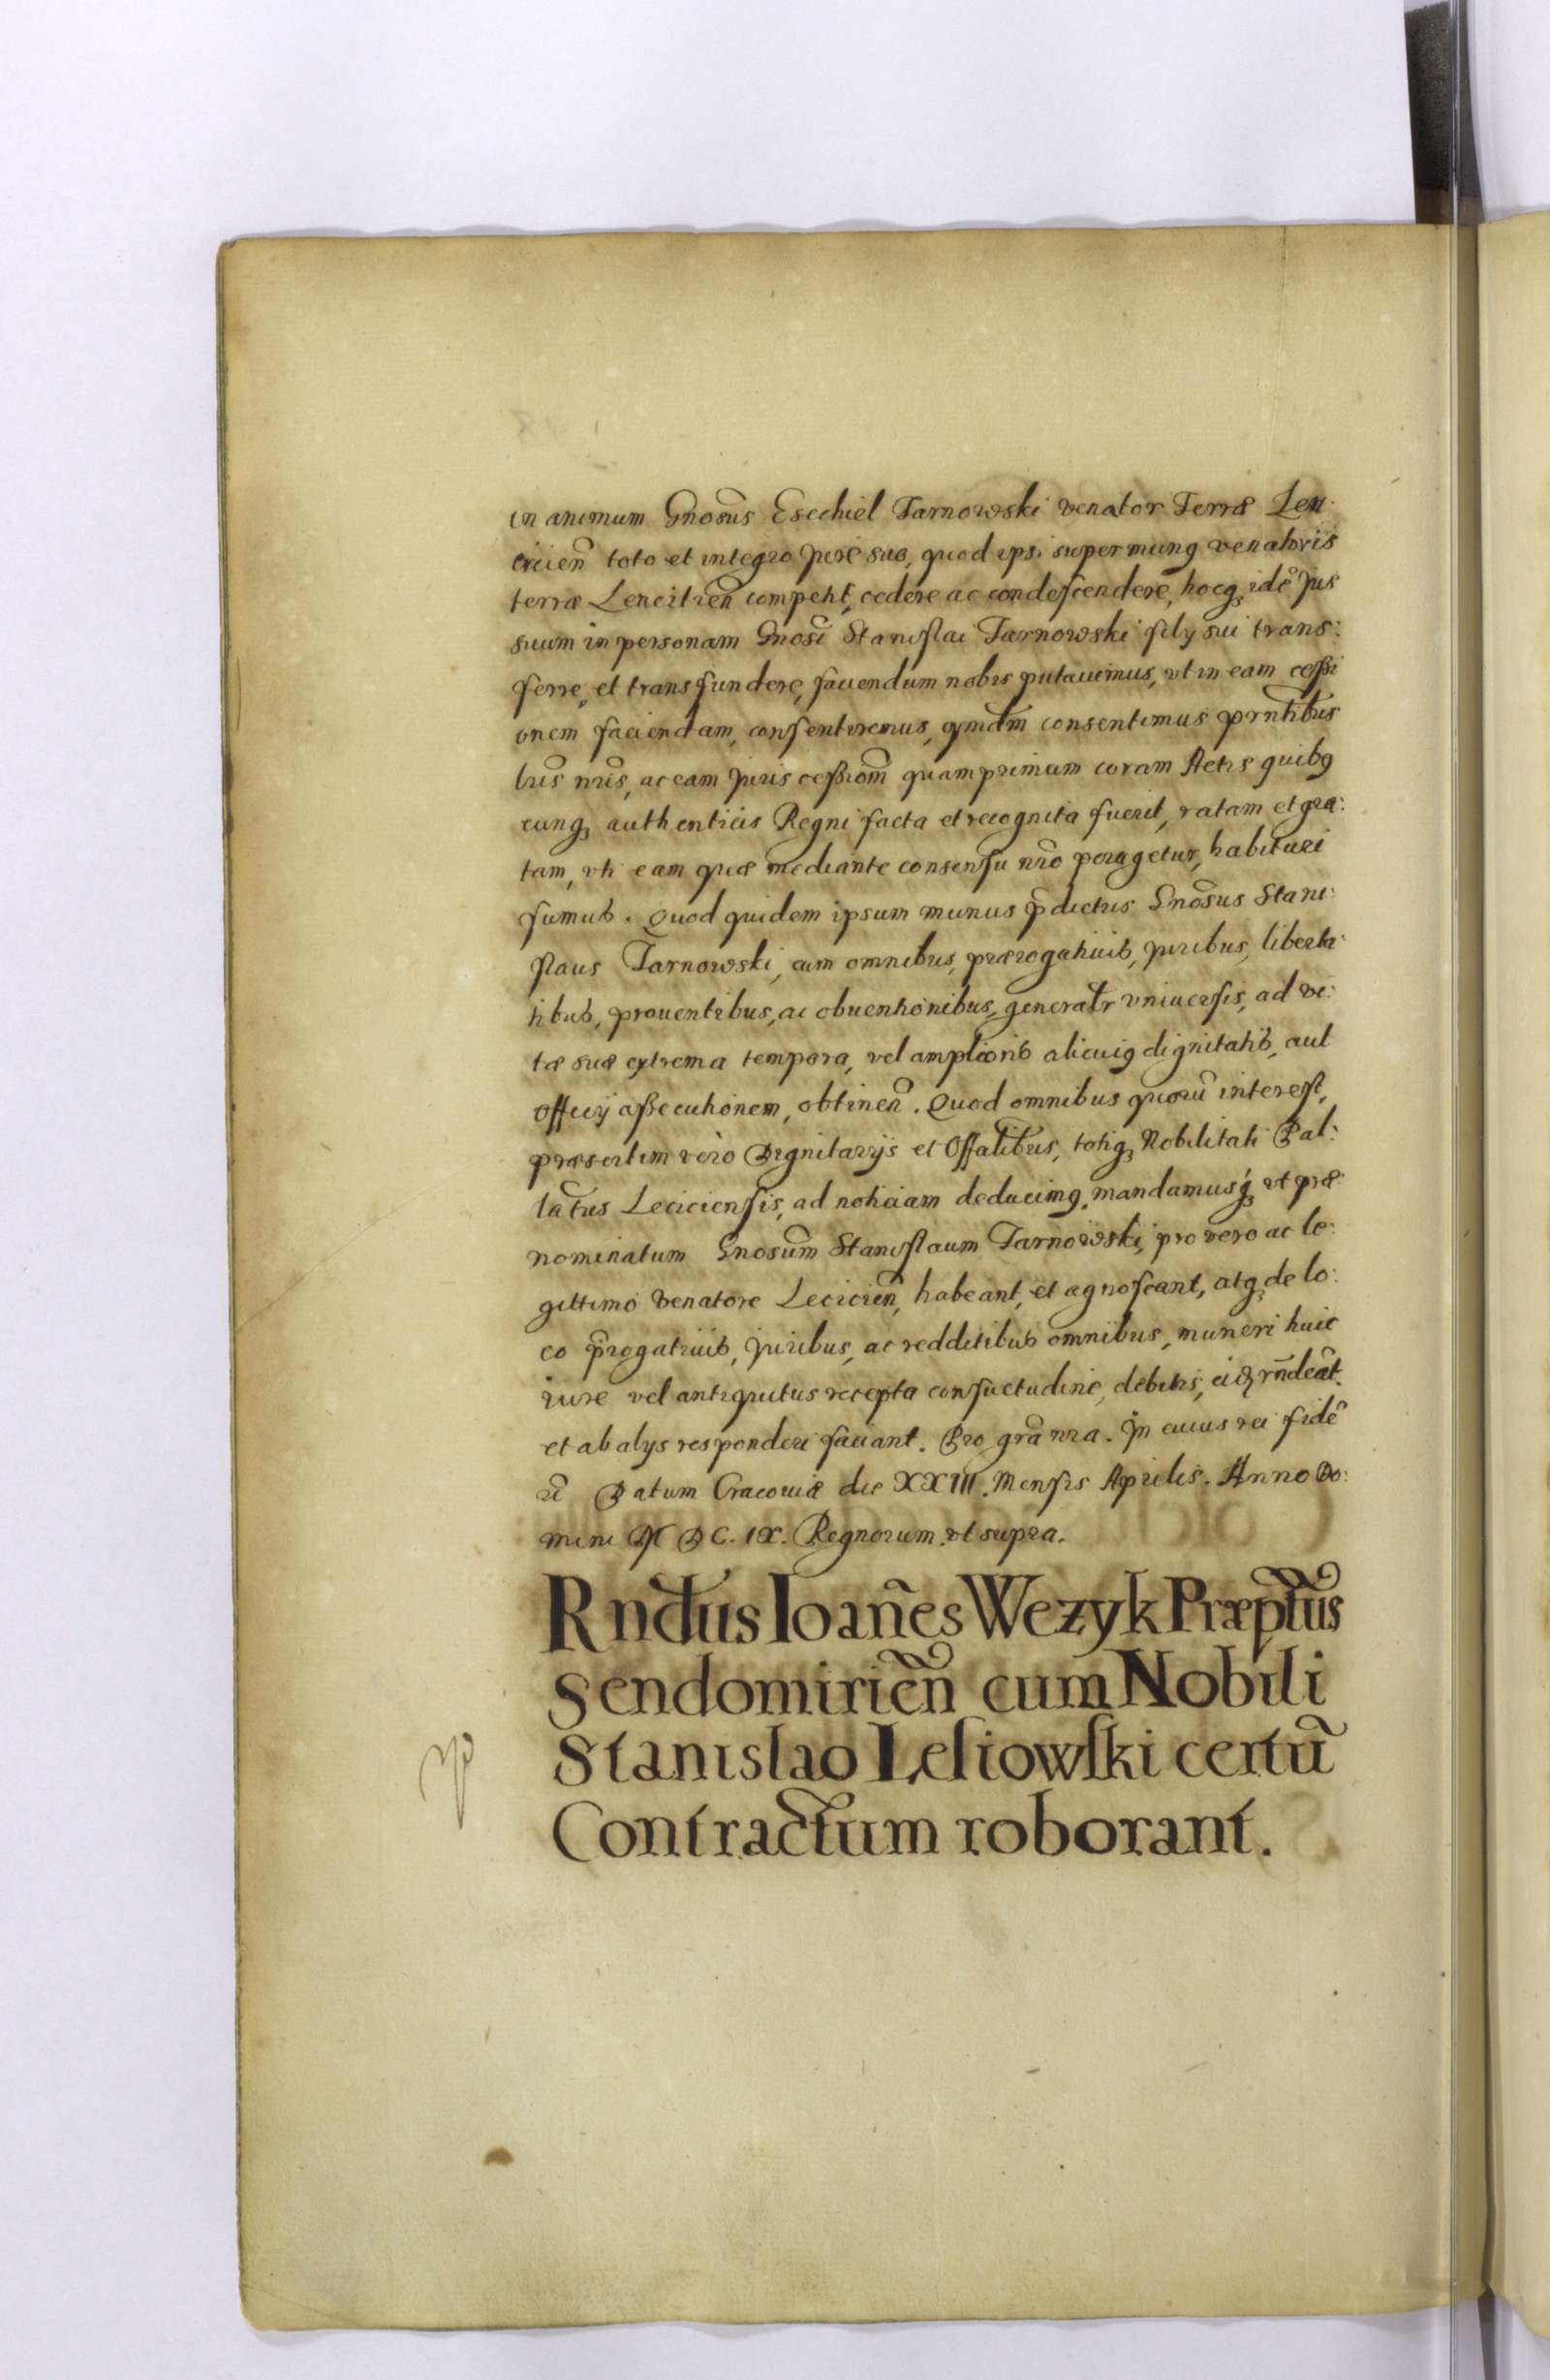 in animum Gnosûs Esechiel Tarnowski venator Terræ Len:
cicień toto et integro jure suo, quod ipsi super munq venatoris
terræ Lencitień competit, cedere ac condescendere, hocq idê jus
suum in personam Gnosî Stanislai Tarnowski filÿ sui trans:
ferre, et transfundere, fauendum nobis putauimus, vt in eam cessi
onem faciendam, consentiremus, qmdm̃ consentimus prñtibus
lris nris, ac eam juris cessiom̃ quamprimum coram Actis quibq
cunq authenticis Regni facta et recognita fuerit, ratam et gra:
tam, vti eam quæ mediante consensu nrõ peragetur, habituri
sumus. Quod quidem ipsum munus p̃dictus Gnosũs Stani:
slaus Tarnowski, cum omnibus, prærogatiuis, juribus, liberta:
tibus, prouentibus, ac obuentionibus, generatr vniuersis, ad vi:
tæ suæ extrema tempora, vel amplioris alicuiq dignitatis, aut
officÿ assecutionem, obtineñ. Quod omnibus quorũ interest,
præsertim verò Dignitarÿs et Offalibus, totiq Nobilitati Pal:
latũs Leciciensis, ad notitiam deducimq, mandamusq vt præ
nominatum Gnosũm Stanislaum Tarnowski, pro vero ac le:
gittimo venatore Lecicień, habeant, et agnoscant, atq de lo:
co p̃rogatiuis, juribus, ac redditibus omnibus, muneri huic
iure vel antiquitus recepta consuetudine, debitis, ei rñdeãt.
et ab alÿs responderi faciant. Pro grã nra. In cuius rei fidê
Datum Cracouiæ die XXIII. Mensis Aprilis. Anno Do:
mini M DC. IX. Regnorum vt supra.
Rndus Ioañes Wezyk Præptũs
Sendomirień cum Nobili
Stanislao Lesiowski certũ
Contractum roborant.